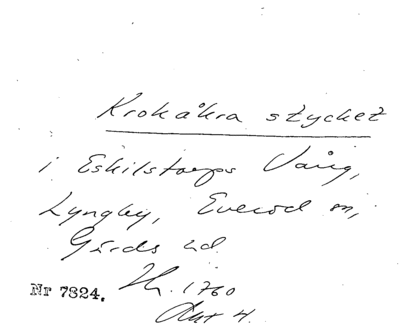 Krokåkra stycket
i Eskilstorps Vång,
Lyngby, Everöd sn,
Gärds hd
Nr 7324. Th. 1760
Akt 4.